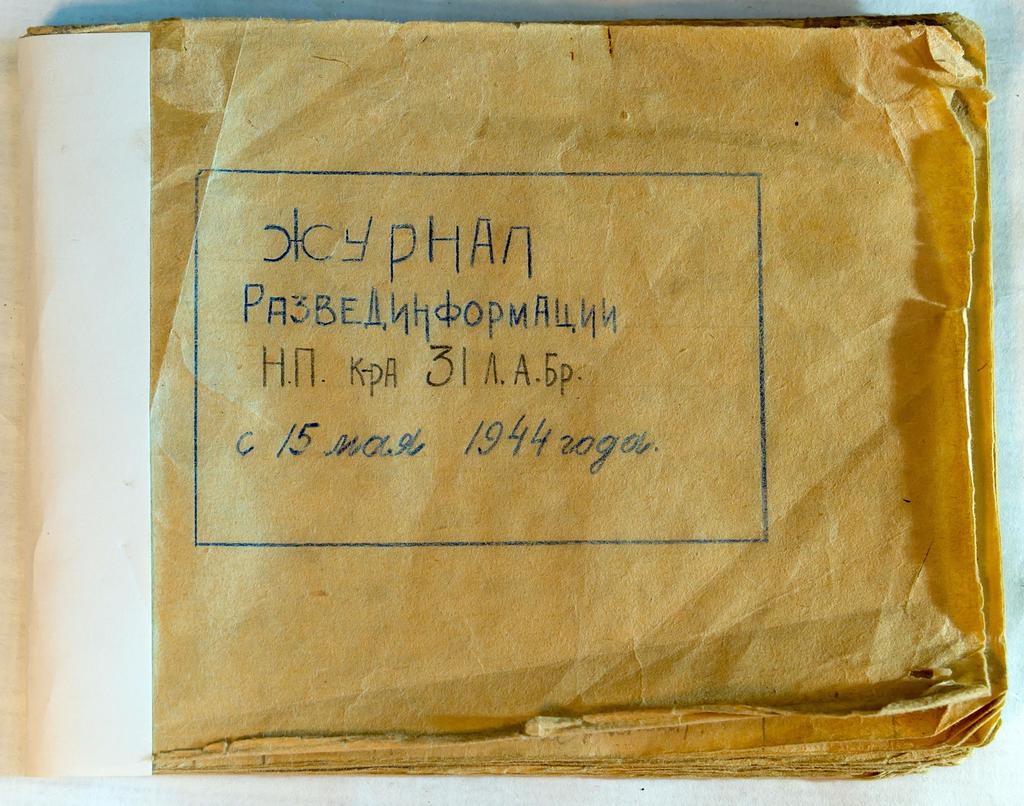 Журнал
Разведин​формации
Н.П. к-ра 31 Л.А.Бр.
с 15 мая 1944 года.